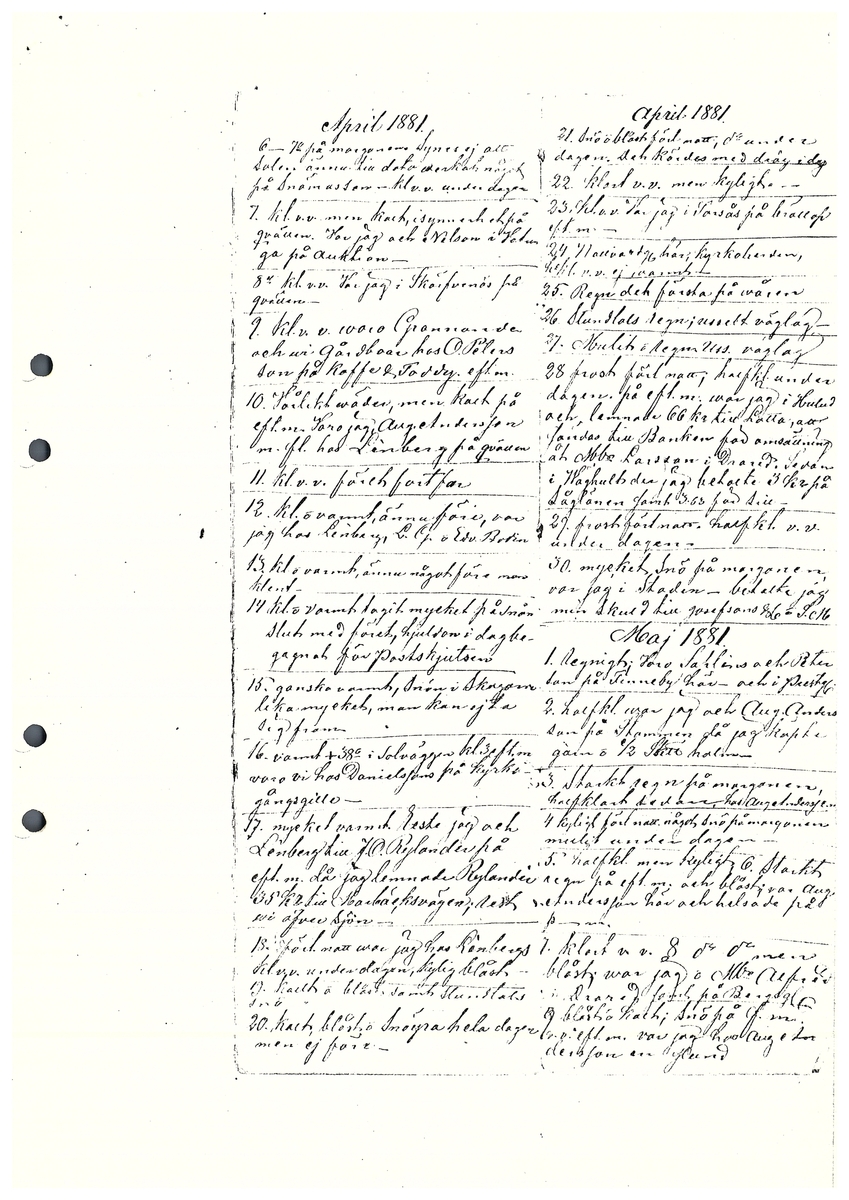 April 1881.
6 – 7° på morgonen Synes ej att
Solen ännu till dato verkat något
på Snömassan – kl. v.v. under dagen
7. kl. v.v. men kallt, isynnerhet på
qvällen. For jag och Nelson i
ga på Auktion –
8de kl. v.v. Var jag i Skärfvenäs på
qvällen –
9. kl. v. v. woro Grannarne
och wi Gårdboar hos O. Peters
son på Kaffe & Toddy. eft m.
10. wäder, men kallt på
eft. m. Voro jag, Aug. Andersson
m. fl. hos Lénberg på qvällen
11. kl. v. v. föret fortfar
12. kl. o varmt, ännu före, var
jag hos Lénberg, L. C. P. o Edv. Bodin
13. kl o varmt, ännu något före
14 kl. o varmt tagit mycket på snön
Slut med föret, hjuldon i dag be-
gagnat för Postskjutsen
15. ganska varmt, Snön i Skogarne
lika mycket, man kan ej ta
sig fram
16. varmt + 38° i Solväggen kl 3 eft m
voro vi hos Danielssons på Kyrko-
gångsgille –
17. mycket varmt Reste jag och
Lénberg till J. O. Rylander på
eft. m. då jag lemnade Rylander
35 Kr till Barbäcksvägen; Reste
wi öfver sjön –
18. först natt war jag hos Lénbergs
kl. v.v. under dagen, kylig blåst –
19. kallt o blåst samt stundtals
snö
20. kallt, blåst o Snöyra hela dagen
men ej före –
April 1881.
21. Snö o blåst först natt, do under
dagen. Det kördes med dräg i dag
22. klart v.v. men kyligt. –
23. kl. v.v. Var jag i Torsås på bröllop
eft. m –
24, Nattvardsg här; Kyrkoherden,
kl. v. v. ej varmt
25. Regn det första på våren
26 Stundtals regn; uselt väglag –
27. Mulit o Regn Uss. väglag
28 frost först natt, halfkl. under
dagen. på eft. m. war jag i Hulud
och, lemnade 66 kr till Lotta, att
sändas till Banken för omsättning
åt Mbr Larsson i Drared. Sedan
i Waghult der jag betalte 3 Kr på
Såglånen samt 3.63 för
29. frost först natt. halfkl. v. v.
under dagen –
30. mycket Snö på morgonen
var jag i Staden – betalte jag
min skuld till Josefsons
Maj 1881.
1. Regnigt; Voro Sahlins och Peter
son på Finneby här – och i Prestg.
2. halfkl. war jag och Aug. Anders
son på Stommen då jag köpte
garn o 1/2 halm –
3. Starkt regn på morgonen,
halfklart sedan hos Aug. Andersson
4 kyligt först natt. något Snö på morgonen
mulit under dagen –
5. halfkl. men kyligt; 6. Starkt
regn på eft. m. och blåst; var Aug.
Andersson här och helsade på
7. klart v. v. 8 do do men
blåst; war jag o Mbr Alfred
i Drared samt på Berget
9 blåst o kallt; Snö på f. m.
v. v. eft. m. var jag hos Aug. An
dersson en stund